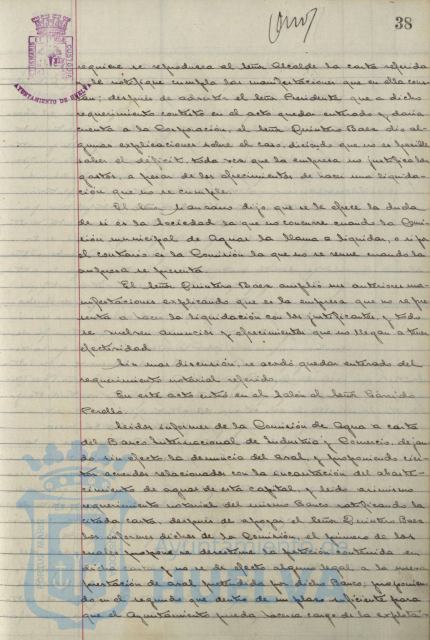 38
AYUNTAMIENTO DE HUELVA
requiere se reproduzca al Señor Alcalde la carta referida
y le notifique cumpla las manifestaciones que en ella cons-
tan; después de advertir el Señor Presidente que a dicho
requerimiento contestó en el acto quedar enterado y daría
cuenta a la Corporación, el Señor Quintero Baez dio al-
gunas explicaciones sobre el caso, diciendo que no es posible
saber el déficit, toda vez que la empresa no justifica los
gastos, a pesar de los ofrecimientos de hacer una liquida-
ción que no se cumple.
El Señor dijo que se le ofrece la duda
de si es la Sociedad la que no concurre cuando la Comi-
sión municipal de Aguas la llama a liquidar, o si por
el contrario es la Comisión la que no se reune cuando la
empresa se presenta.
El Señor Quintero Baez amplió sus anteriores ma-
nifestaciones explicando que es la empresa que no se pres-
ta a hacer la liquidación con los justificantes y todo
se vuelven anuncios y ofrecimientos que no llegan a tener
efectividad.
Sin mas discusión, se acordó quedar enterado del
requerimiento notarial referido.
En este acto entra en el Salón el Señor Garrido
Perelló.
Leidos informes de la Comisión de Agua a carta
del Banco Internacional de Industria y Comercio, dejan-
do sin efecto la denuncia del aval, y proponiendo cier-
tos acuerdos relacionados con la incautación del abaste-
cimiento de aguas de esta capital, y leido asimismo
requerimiento notarial del mismo Banco notificando la
citada carta, después de apoyar el Señor Quintero Baez
los informes dichos de la Comisión, el primero de los
cuales propone se desestime la petición contenida en
dicha carta y no se de efecto alguno legal a la nueva
prestación de aval pretendida por dicho Banco, proponien-
do en el segundo que dentro de un plazo suficiente para
que el Ayuntamiento pueda hacerse cargo de la explota-